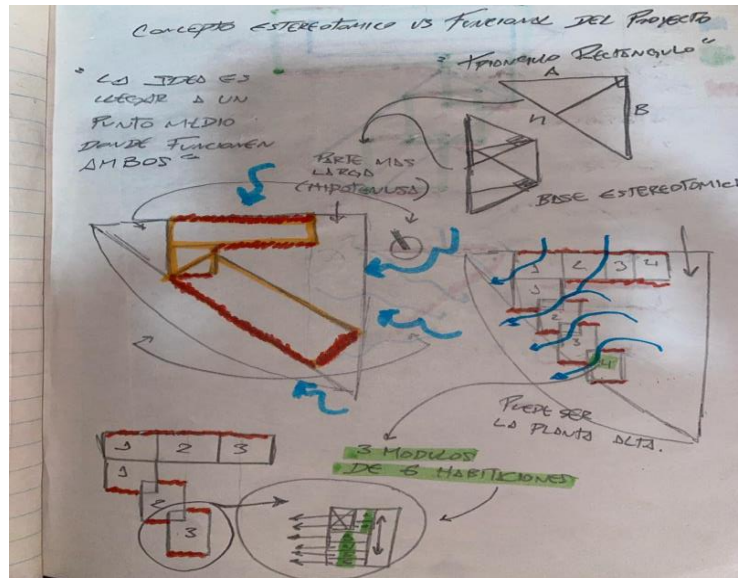 CONCEPTO ESTEREOTOMICO VS FUNCIONAL DEL PROYECTO
"LA IDEA ES
LLEGAR A UN
PUNTO MEDIO
DONDE FUNCIONEN
AMBOS"
"TRIANGULO RECTANGULO"
A
B
H
PARTE MAS
LARGA
(HIPOTENUSA)
BASE ESTEREOTOMICA
1 2 3 4
1
2
3
4
PUEDE SER
LA PLANTA ALTA.
1 2 3
1
2
3
3 MODULOS
DE 6 HABITACIONES